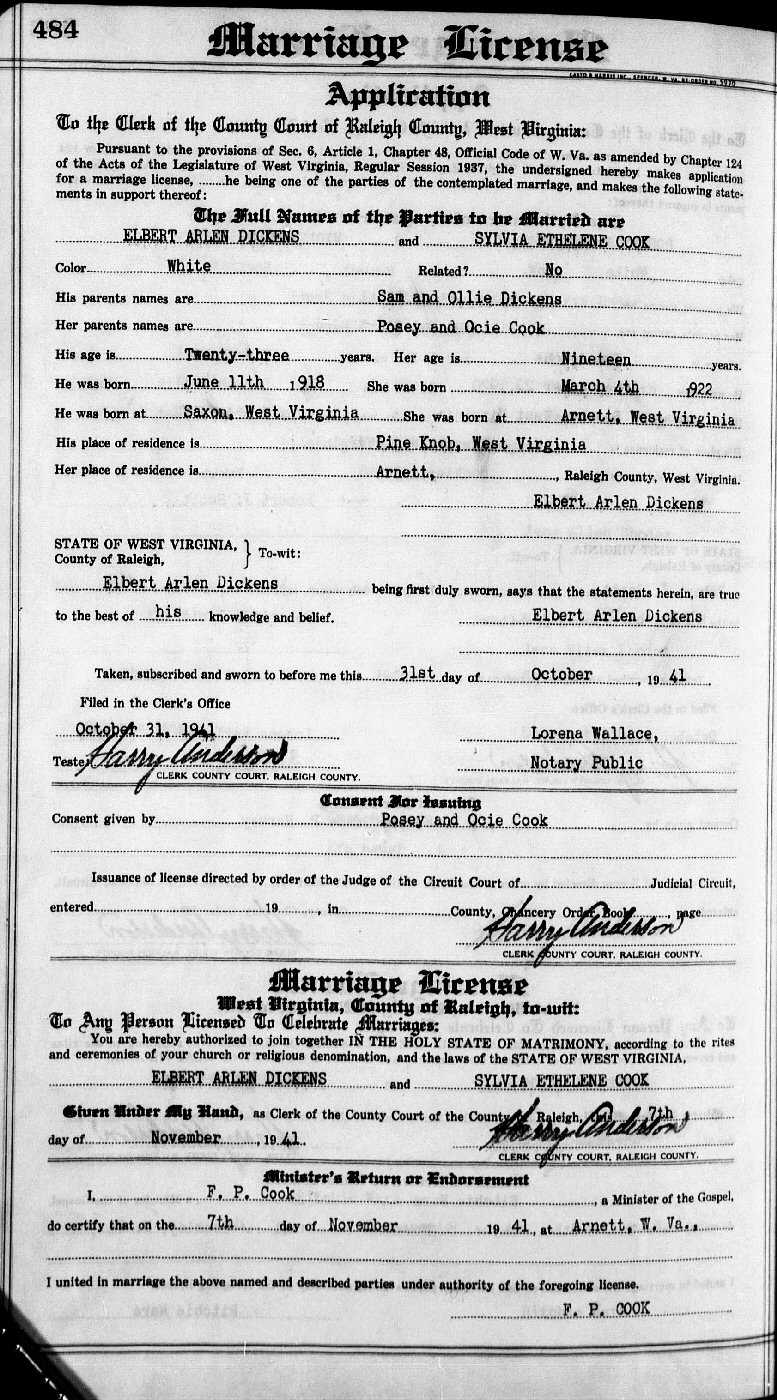 484
Marriage License
CASTO & HARRIS INC., SPENCER, W. VA. RE-ORDER NO.
Application
To the Clerk of the County Court of Raleigh County, West Virginia:
Pursuant to the provisions of Sec. 6, Article 1, Chapter 48, Official Code of W. Va. as amended by Chapter 124
of the Acts of the Legislature of West Virginia, Regular Session 1937, the undersigned hereby makes application
for a marriage license, ........he being one of the parties of the contemplated marriage, and makes the following state-
ments in support thereof:
The Full Names of the Parties to be Married are
ELBERT ARLEN DICKENS and SYLVIA ETHELENE COOK
Color White Related? No
His parents names are Sam and Ollie Dickens
Her parents names are Posey and Ocie Cook
His age is Twenty-three years. Her age is Nineteen years.
He was born June 11th 1918 She was born March 4th 1922
He was born at Saxon, West Virginia She was born at Arnett, West Virginia
His place of residence is Pine Knob, West Virginia
Her place of residence is Arnett, , Raleigh County, West Virginia.
Elbert Arlen Dickens
STATE OF WEST VIRGINIA,
County of Raleigh, } To-wit:
Elbert Arlen Dickens being first duly sworn, says that the statements herein, are true
to the best of his knowledge and belief. Elbert Arlen Dickens
Taken, subscribed and sworn to before me this 31st day of October , 19 41
Filed in the Clerk's Office
October 31, 1941 Lorena Wallace,
Teste: Harry Anderson Notary Public
CLERK COUNTY COURT, RALEIGH COUNTY.
Consent For Issuing
Consent given by Posey and Ocie Cook
Issuance of license directed by order of the Judge of the Circuit Court of Judicial Circuit,
entered 19 , in County, Chancery Order Book , page
Harry Anderson
CLERK COUNTY COURT, RALEIGH COUNTY.
Marriage License
West Virginia, County of Raleigh, to-wit:
To Any Person Licensed To Celebrate Marriages:
You are hereby authorized to join together IN THE HOLY STATE OF MATRIMONY, according to the rites
and ceremonies of your church or religious denomination, and the laws of the STATE OF WEST VIRGINIA,
ELBERT ARLEN DICKENS and SYLVIA ETHELENE COOK
Given Under My Hand, as Clerk of the County Court of the County of Raleigh, this 7th
day of November , 19 41. Harry Anderson
CLERK COUNTY COURT, RALEIGH COUNTY.
Minister's Return or Endorsement
I, F. P. Cook , a Minister of the Gospel,
do certify that on the 7th day of November 19 41, at Arnett, W. Va.,
I united in marriage the above named and described parties under authority of the foregoing license.
F. P. COOK